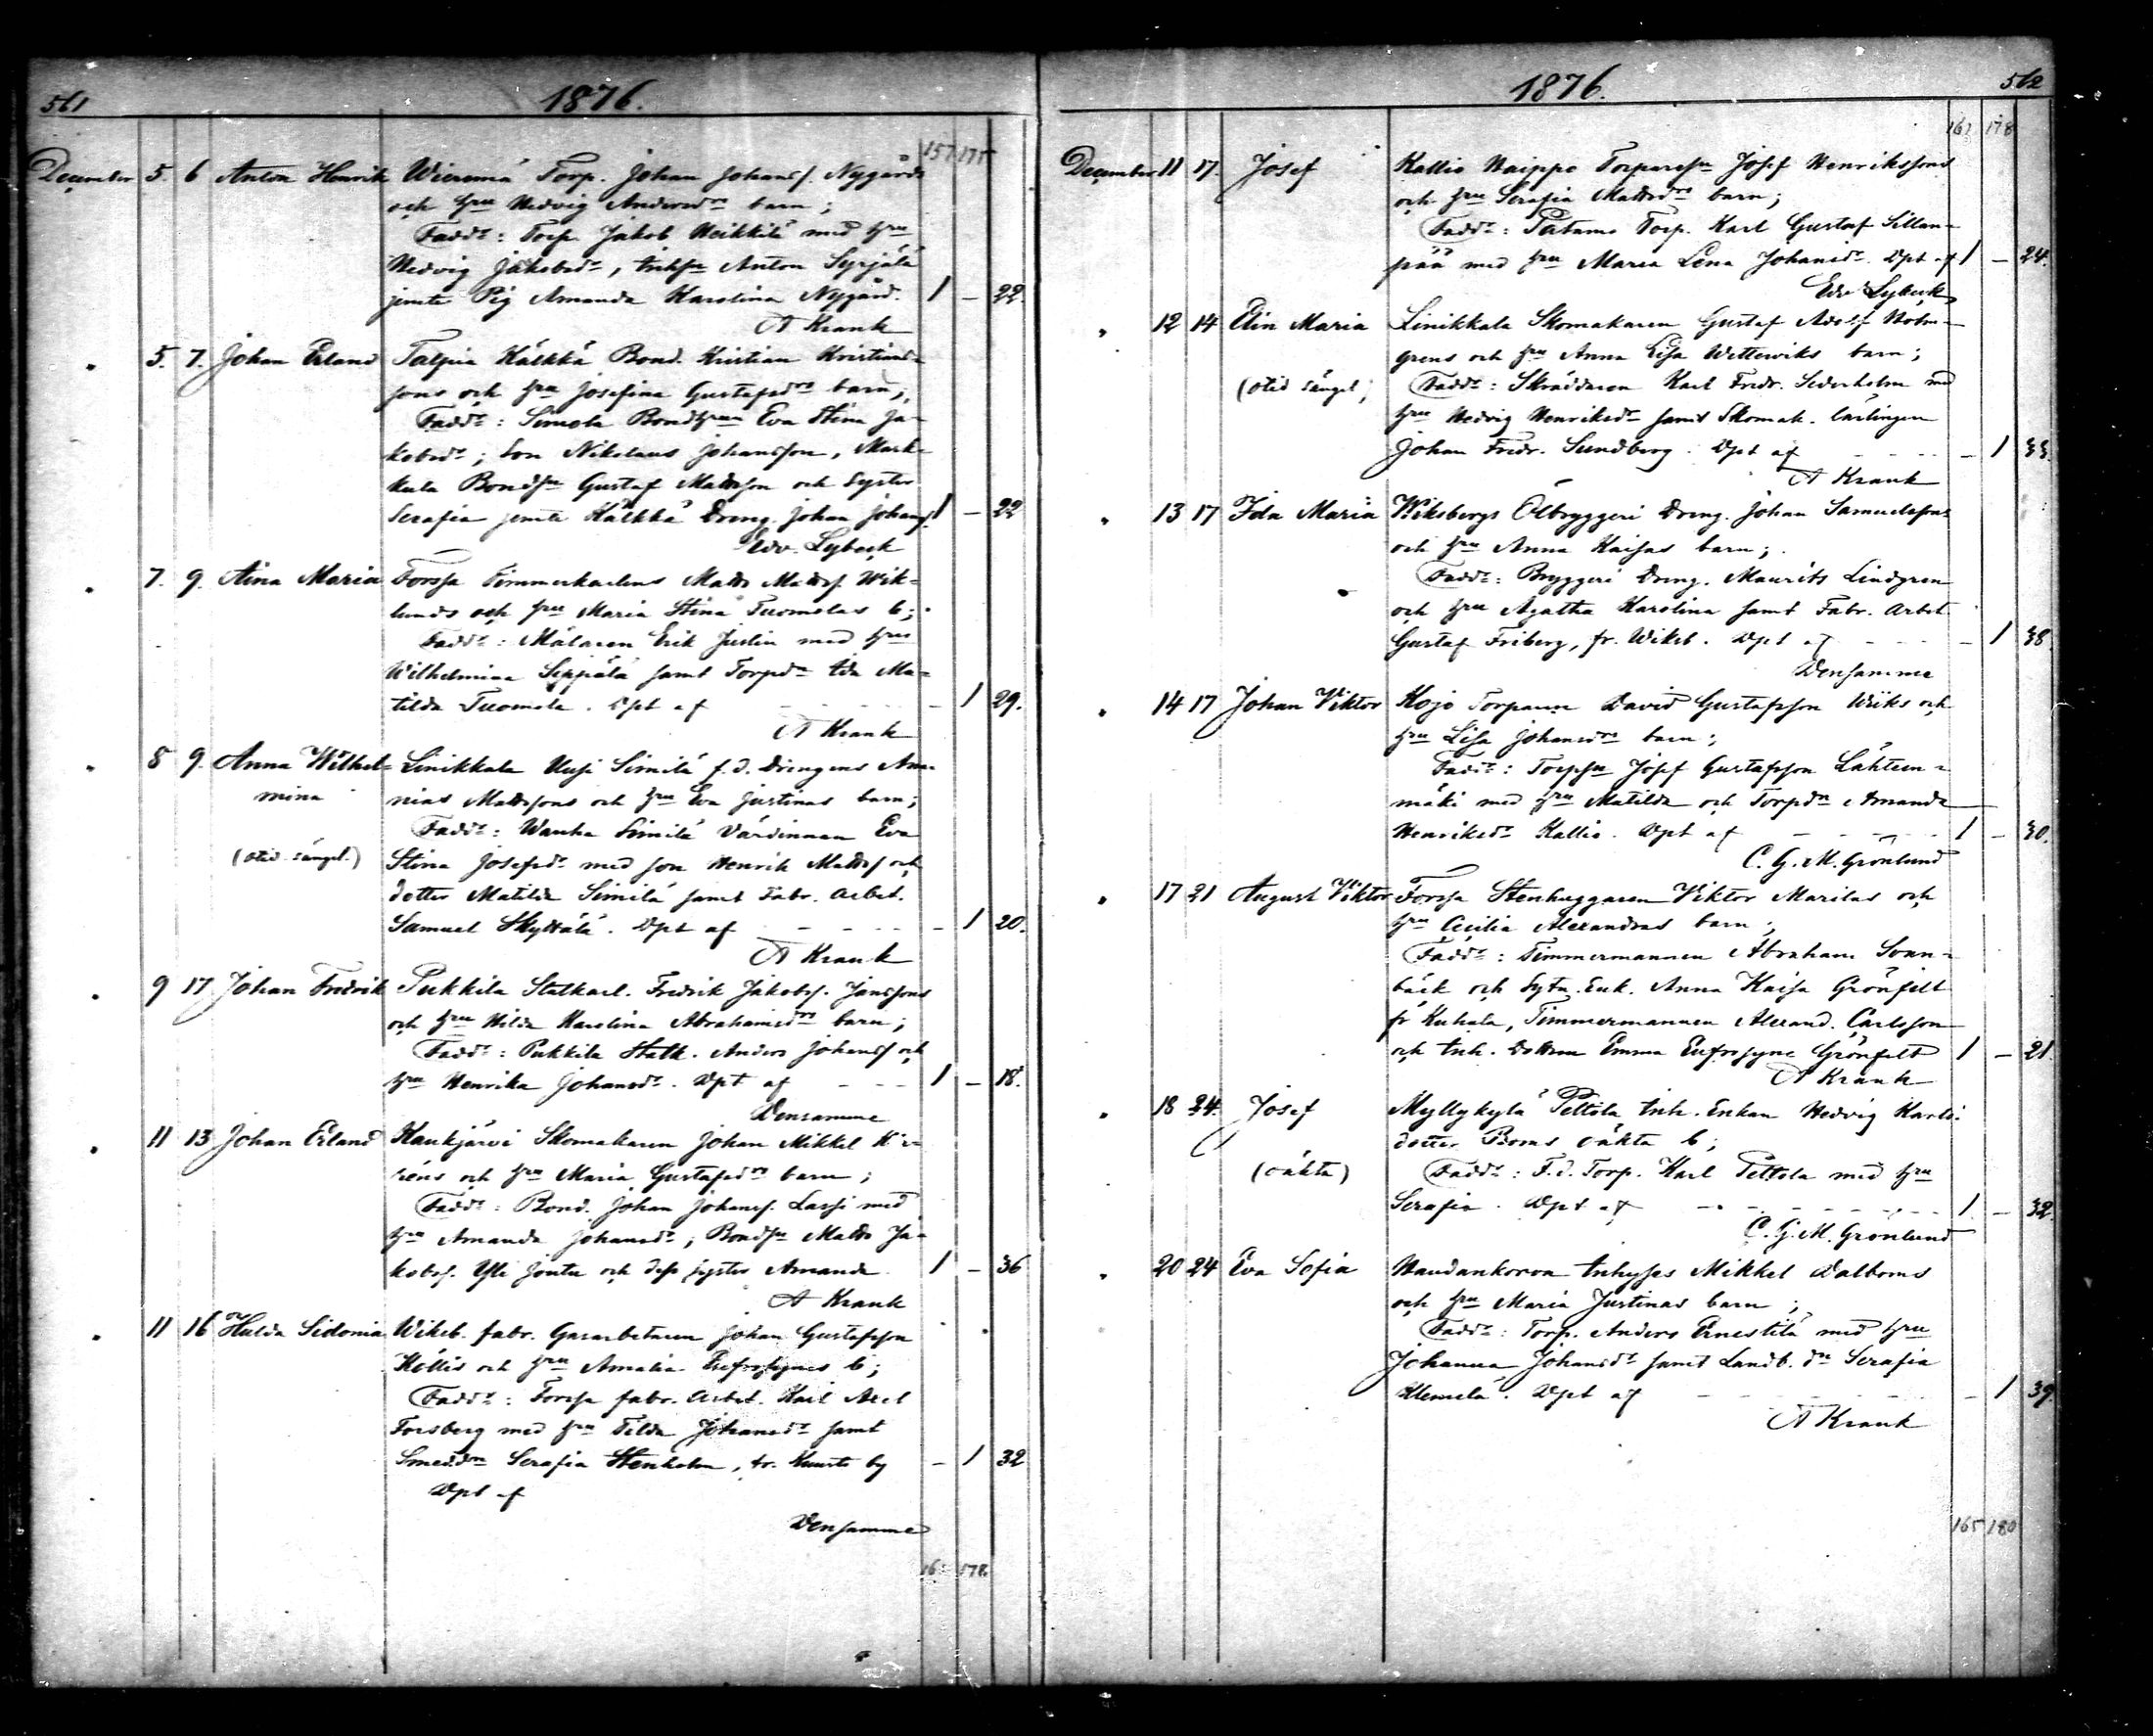 561
1876.
157 175
December 5. 6 Anton Henrik Wieremä Torp. Johan Johanss. Nygårds
och hru Hedvig Andersdrs barn;
Fadd: Torp. Jakob Heikkilä med hru
Hedvig Jakobsdr, Inhsn Anton Syrjälä
jemte Pig Amanda Karolina Nygård. 1 – 22.
A Krank
" 5. 7. Johan Erland Talpia Källkä Bond. Kristian Kristians-
sons och hru Josefina Gustafsdrs barn;
Fadd: Simola Bondhrun Eva Stina Ja-
kobsdr; Son Nikolaus Johansson, Mark-
kula Bondsn Gustaf Mattsson och Syster
Serafia jemte Källkä Dreng. Johan Johanss. 1 – 22
Edv. Lybeck
" 7. 9. Aina Maria Forssa Timmerkarlens Matts Mattss. Wik-
lunds och hru Maria Stina Tuomolas b;
Fadd: Målaren Erik Justin med hru
Wilhelmina Seppälä samt Torpdr Ida Ma-
tilda Tuomola. Dpt af – 1 29.
A Krank
" 8 9. Anna Wilhel- Linikkala Uusi Simila f.d. Drengens Ana-
mina nias Mattssons och hru Eva Justinas barn;
Fadd: Wanha Simila Värdinnan Eva
(otid. sängel.) Stina Josefsdr med son Henrik Mattss och
dotter Matilda Similä samt Fabr. Arbet.
Samuel Skyttälä. Dpt af – 1 20.
A Krank
" 9 17 Johan Fredrik Pukkila Statkarl. Fredrik Jakobss. Janssons
och hru Hilda Karolina Abrahamsdrs barn;
Fadd: Pukkila Statk. Anders Johanss och
hru Henrika Johansdr. Dpt af 1 – 18.
Densamme
" 11 13 Johan Erland Kaukjärvi Skomakaren Johan Mikkel
réns och hru Maria Gustafsdrs barn;
Fadd: Bond. Johan Johanss. Lassi med
hru Amanda Johansdr, Bondsn Matts Ja-
kobss. Yli Jouta och dess syster Amanda 1 – 36
A Krank
" 11 16 Hulda Sidonia Wiksb. fabr. Gasarbetaren Johan Gustafsson
Källis och hru Amalia Eufrosynes b;
Fadd: Forssa fabr. Arbet. Karl Axel
Forsberg med hru Tilda Johansdr samt
Smeddr Serafia Stenholm, fr. Kuusto by – 1 32
Dpt af
Densamme
178
1876.
562
178
December 11 17. Josef Kallio Haippo Torparesn Josef Henrikssons
och hru Serafia Mattsdrs barn;
Fadd: Patamo Torp. Karl Gustaf Sillan-
pää med hru Maria Lena Johansdr. Dpt af 1 – 24.
Edv Lybeck
" 12 14 Elin Maria Linikkala Skomakaren Gustaf Adolf Holm-
grens och hru Anna Lisa Wettewiks barn;
(otid sängel) Fadd: Skräddaren Karl Fredr. Sederholm med
hru Hedvig Henriksdr samt Skomak. lärlingen
Johan Fredr. Sundberg. Dpt af – 1 33.
A Krank
" 13 17 Ida Maria Wiksbergs Ölbryggeri Dreng. Johan Samuelssons
och hru Anna Kaisas barn;
Fadd: Bryggeri Dreng. Maurits Lindgren
och hru Agatha Karolina samt Fabr. arbet.
Gustaf Friberg, fr. Wiksb. Dpt af – 1 38
Densamme
" 14 17 Johan Viktor Kojo Torparen David Gustafsson Wiiks och
hru Lisa Johansdrs barn;
Fadd: Torpsn Josef Gustafsson Lähteen-
mäki med hru Matilda och Torpdn Amanda
Henriksdr Kallio. Dpt af 1 – 30.
C. G. M. Grönlund
" 17 21 August Viktor Forssa Stenhuggaren Viktor Marilas och
hru Cecilia Alexandras barn;
Fadd: Timmermannen Abraham Svan-
bäck och Sytn. Enk. Anna Kaisa Grönfelt
fr Kuhala, Timmermannen Alexand. Carlsson
och Inh. Dottren Emma Eufrosyne Grönfelt 1 – 21
A Krank
" 18 24. Josef Myllykylä Pettola Inh. Enkan Hedvig Karls-
dotter Boms oäkta b;
(oäkta) Fadd: F.d. Torp. Karl Pettola med hru
Serafia. Dpt af 1 – 32
C. G. M. Grönlund
" 20 24 Eva Sofia Haudankorva Inhyses Mikkel Dalboms
och hru Maria Justinas barn;
Fadd: Torp. Anders Ernestilä med hru
Johanna Johansdr samt Landb. dn Serafia
Klemelä. Dpt af – 1 39.
A Krank
165 180